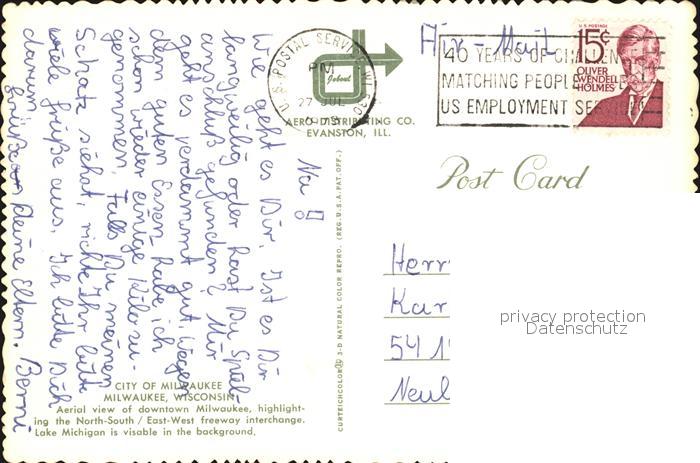 Na!
Wie geht es Dir. Ist es Dir
langweilig oder hast Du Spiel-
anschluß gefunden? Mir
geht es verdammt gut, wegen
dem guten Essen habe ich
schon wieder einige Kilos zu-
genommen. Falls Du meinen
Schatz siehst, richte Ihr bitte
viele Grüße aus. Ich bitte Dich
darum!
Grüße Deine Eltern. Benni
CITY OF MILWAUKEE
MILWAUKEE, WISCONSIN
Aerial view of downtown Milwaukee, highlight-
ing the North-South / East-West freeway interchange.
Lake Michigan is visable in the background.
U.S. POSTAL SERVICE WI 530
PM
27 JUL
AERO DISTRIBUTING CO.
EVANSTON, ILL.
CURTEICHCOLOR® 3-D NATURAL COLOR REPRO. (REG. U.S.A. PAT. OFF.)
Air-Mail
40 YEARS OF CHALLEN
MATCHING PEOPLE
US EMPLOYMENT SE
U.S. POSTAGE
15¢
OLIVER
WENDELL
HOLMES
Post Card
Herr
Kar
541
Neul
privacy protection
Datenschutz